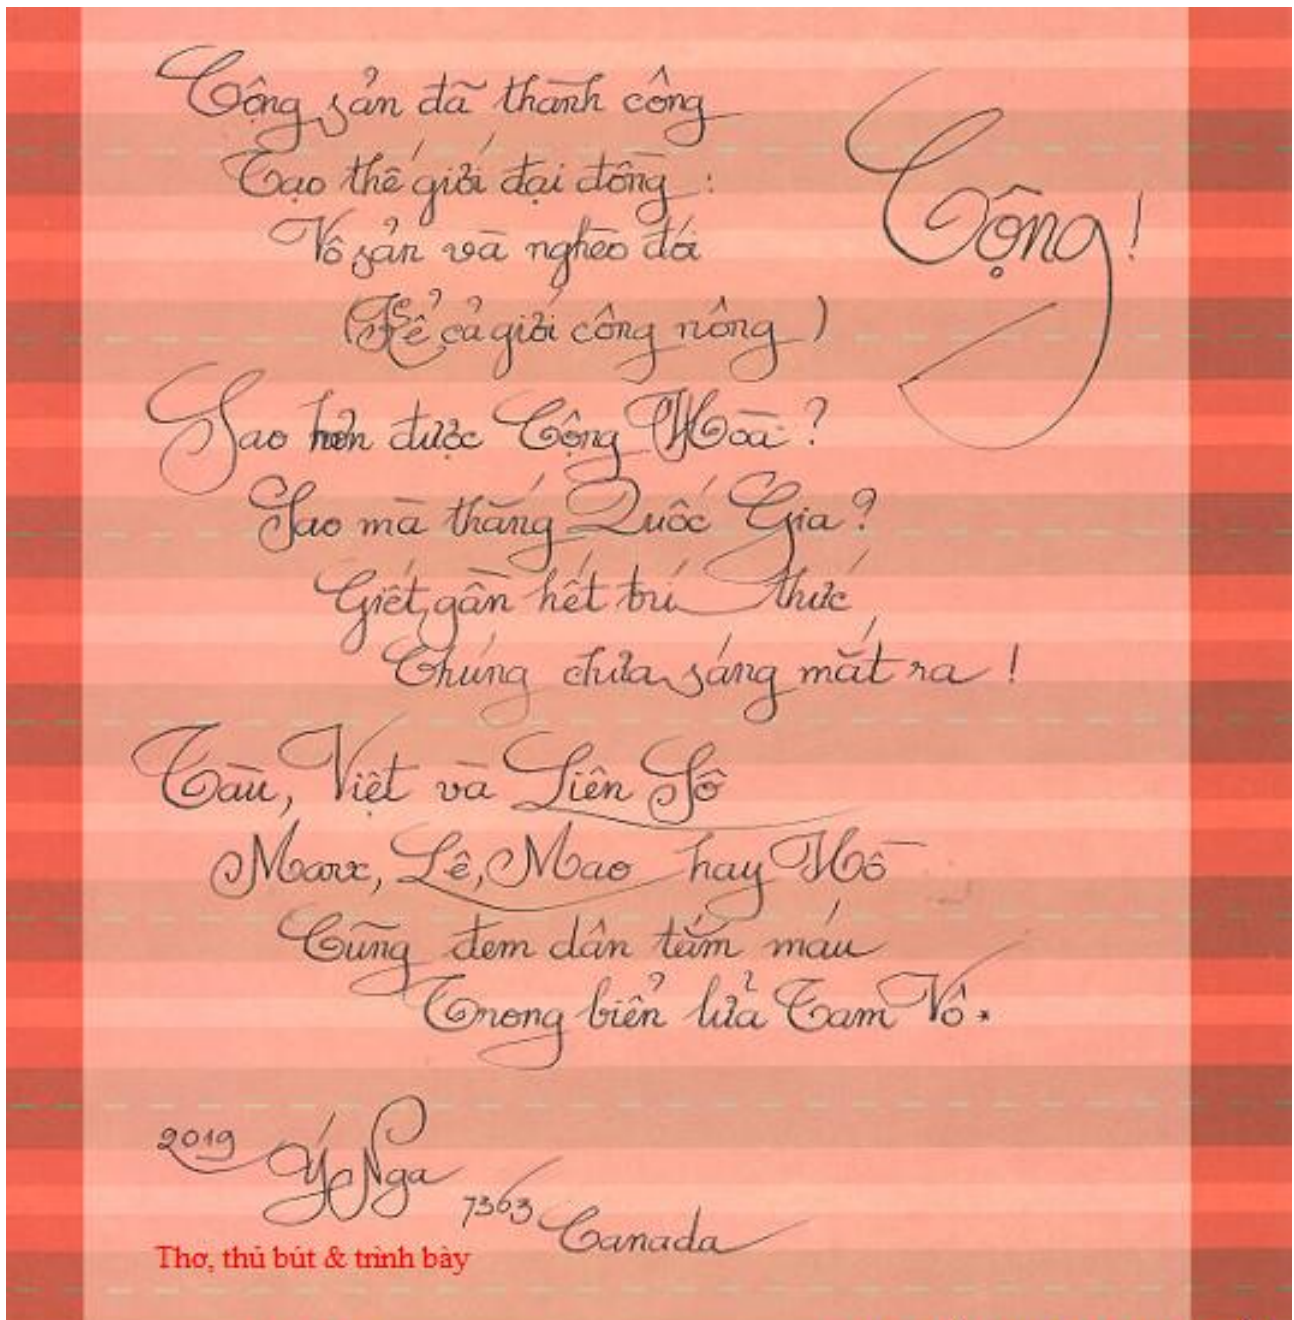 Cộng!
Cộng sản đã thành công
Tạo thế giới đại đồng:
Vô sản và nghèo đói
(Kể cả giới công nông)
Sao hơn được Cộng Hoà?
Sao mà thắng Quốc Gia?
Giết gần hết trí thức
Chúng chưa sáng mắt ra!
Tàu, Việt và Liên Sô
Marx, Lê, Mao hay Hồ
Cũng đem dân tắm máu
Trong biển lửa Tam Vô.*
2019 Ý Nga
7363 Canada
Thơ, thủ bút & trình bày